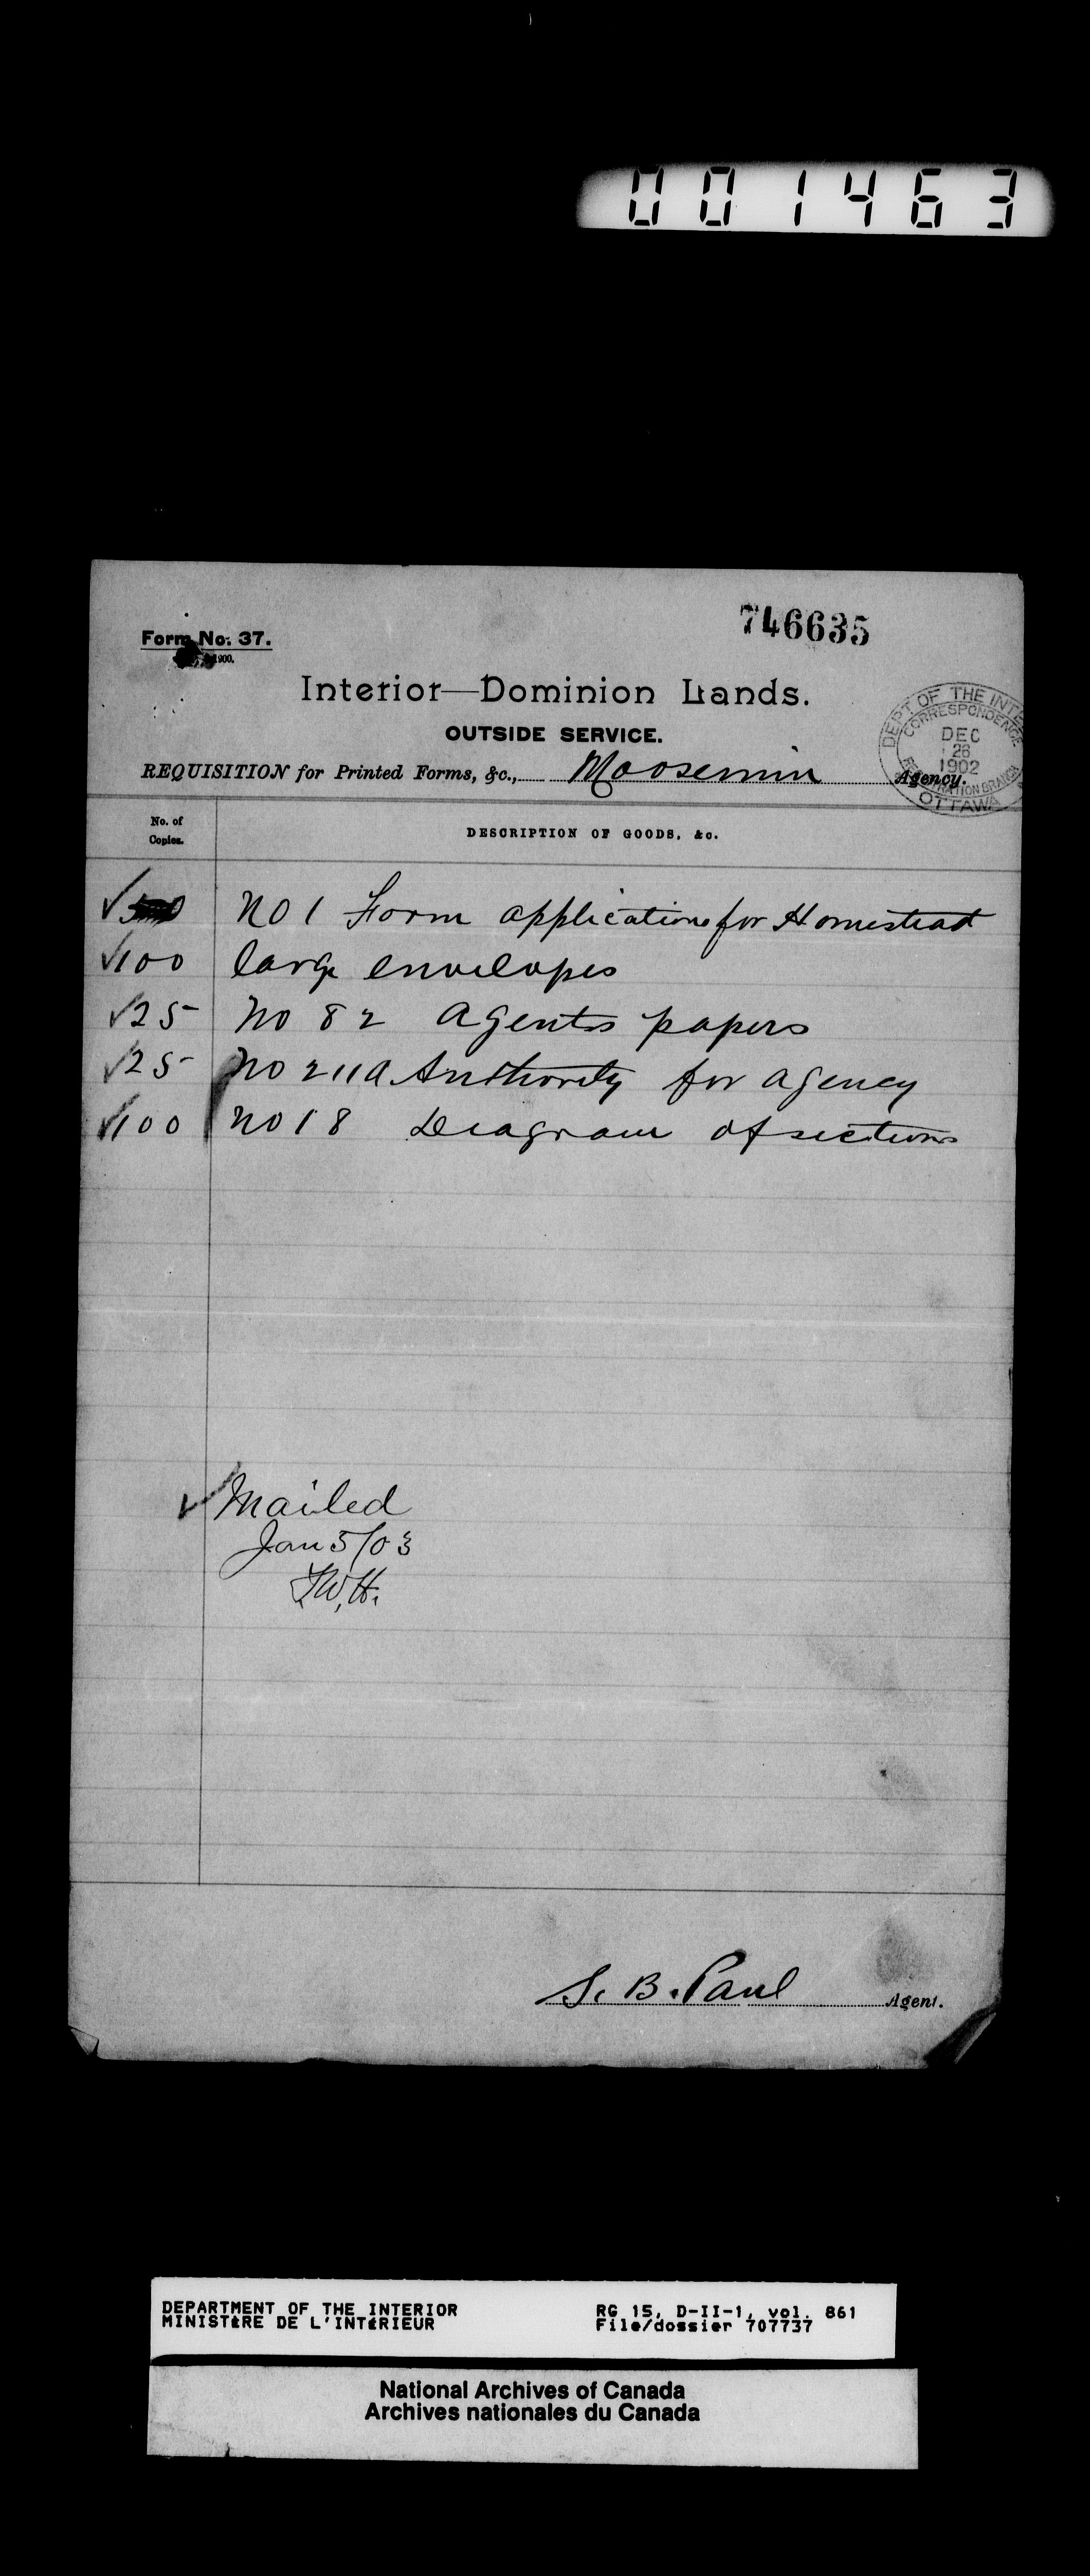 001463
746635
Form No. 37.
1900.
Interior—Dominion Lands.
OUTSIDE SERVICE.
DEPT OF THE INTE
CORRESPONDENCE
DEC
26
1902
REGISTRATION BRANCH
OTTAWA
REQUISITION for Printed Forms, &c., Moosemin Agency.
No. of
Copies.
DESCRIPTION OF GOODS, &c.
✓ No 1 Form applications for Homestead
✓100 large envelopes
✓25 No 82 Agents papers
✓25 No 211a Authority for agency
✓100 No 18 Diagram of sections
✓ Mailed
Jan 5/03
S. B. Paul Agent.
DEPARTMENT OF THE INTERIOR RG 15, D-II-1, vol. 861
MINISTÈRE DE L'INTÉRIEUR File/dossier 707737
National Archives of Canada
Archives nationales du Canada